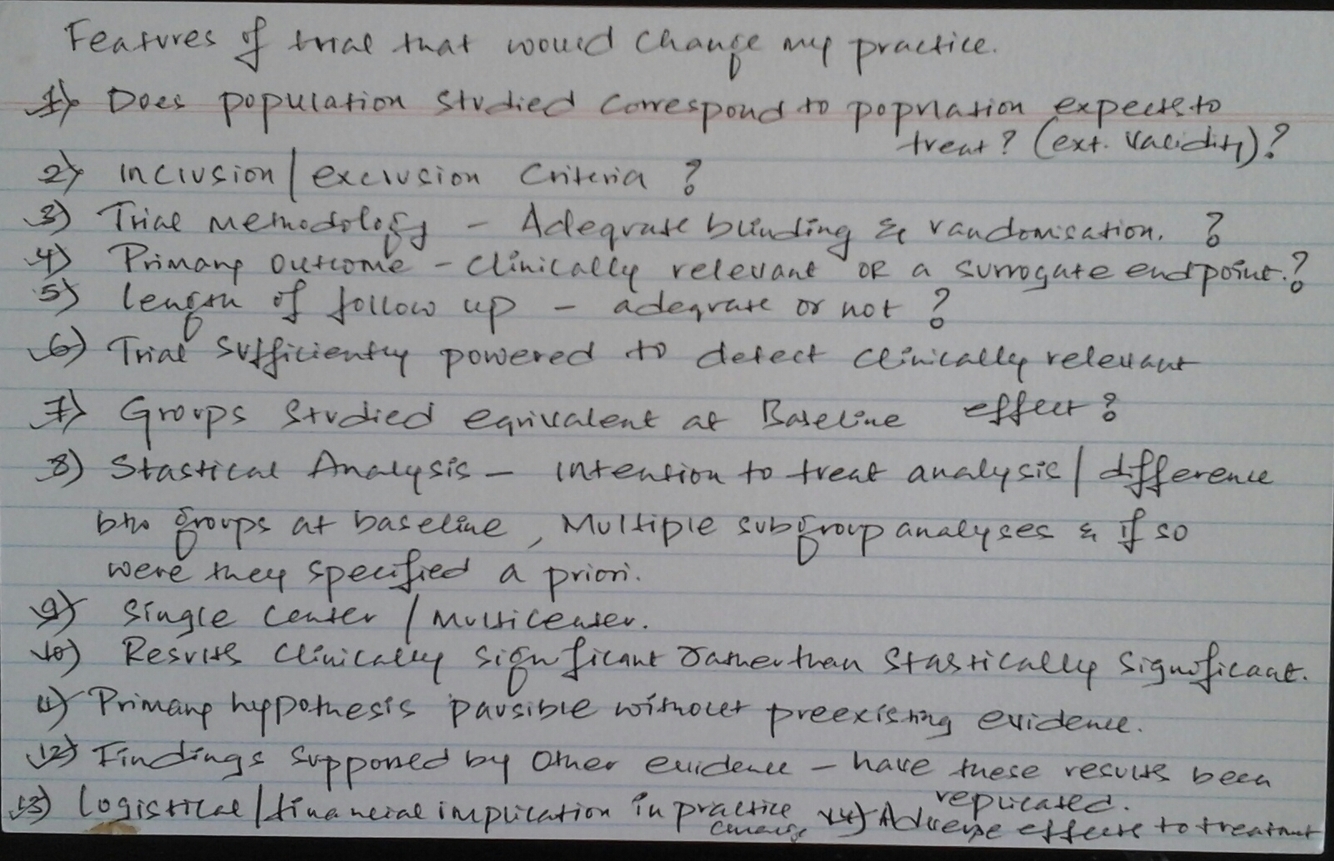 Features of trial that would change my practice.
1) Does population studied correspond to population expects to
treat? (ext. validity)?
2) Inclusion/exclusion Criteria ?
3) Trial methodology - Adequate blinding & randomisation. ?
4) Primary outcome - clinically relevant OR a surrogate endpoint.?
5) length of follow up - adequate or not ?
6) Trial sufficiently powered to detect clinically relevant
effect ?
7) Groups studied equivalent at Baseline
8) Stastical Analysis - intention to treat analysis/difference
btw groups at baseline, Multiple subgroup analyses & if so
were they specified a priori.
9) Single center / Multicenter.
10) Results clinically significant rather than stastically significant.
11) Primary hypothesis pausible without preexisting evidence.
12) Findings supported by other evidence - have these results been
replicated.
13) Logistical/financial implication in practice
change
14) Adverse effects to treatment